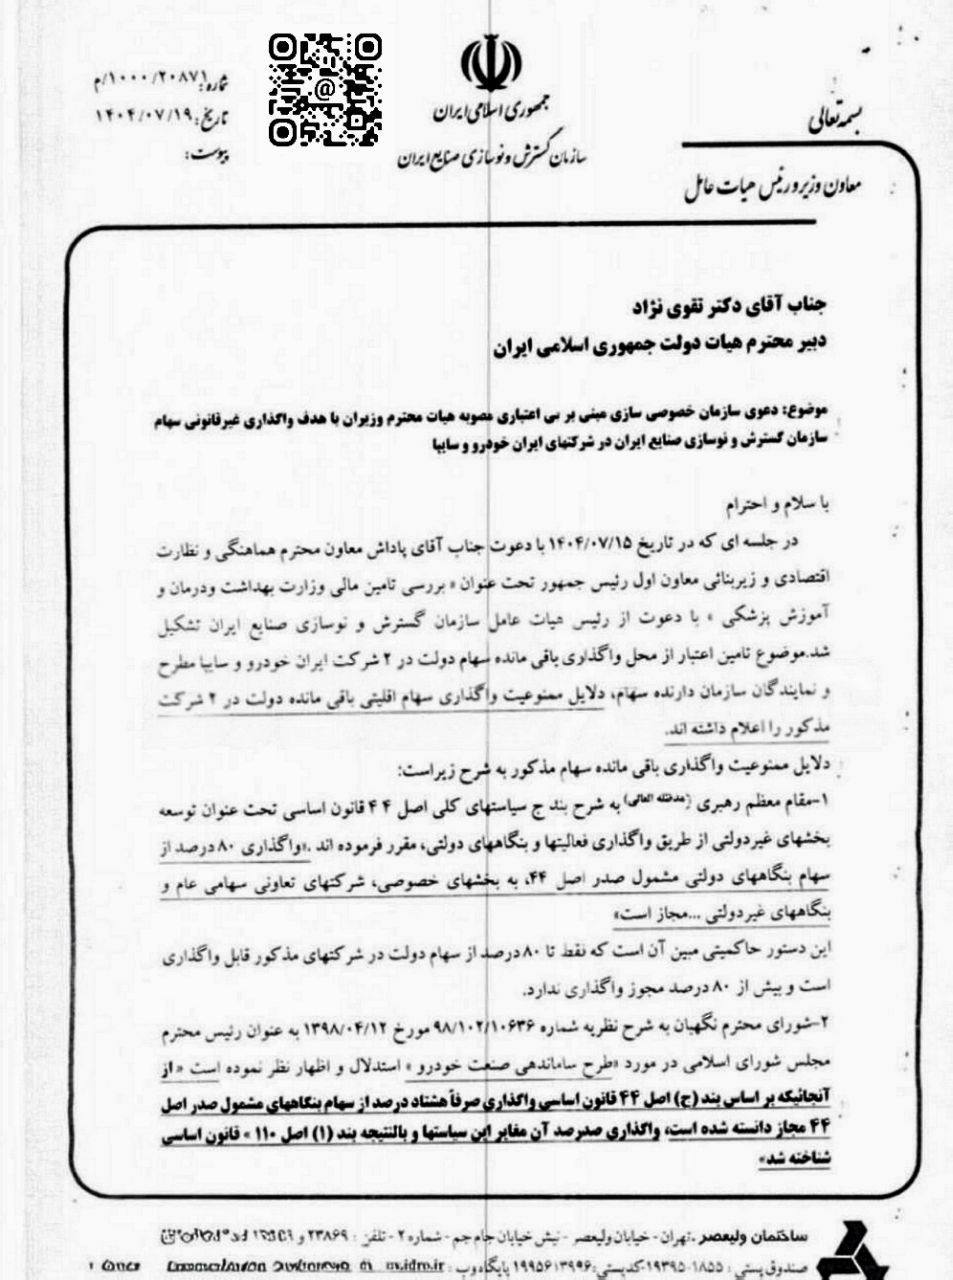 بسمه تعالی
جمهوری اسلامی ایران
سازمان گسترش و نوسازی صنایع ایران
معاون وزیر و رئیس هیات عامل
شماره: ۱۰۰۰/۲۰۸۷۱/م
تاریخ: ۱۴۰۴/۰۷/۱۹
پیوست:
جناب آقای دکتر تقوی نژاد
دبیر محترم هیات دولت جمهوری اسلامی ایران
موضوع: دعوی سازمان خصوصی سازی مبنی بر بی اعتباری مصوبه هیات محترم وزیران با هدف واگذاری غیرقانونی سهام
سازمان گسترش و نوسازی صنایع ایران در شرکتهای ایران خودرو و سایپا
با سلام و احترام
در جلسه ای که در تاریخ ۱۴۰۴/۰۷/۱۵ با دعوت جناب آقای پاداش معاون محترم هماهنگی و نظارت
اقتصادی و زیربنائی معاون اول رئیس جمهور تحت عنوان « بررسی تامین مالی وزارت بهداشت ودرمان و
آموزش پزشکی » با دعوت از رئیس هیات عامل سازمان گسترش و نوسازی صنایع ایران تشکیل
شد.موضوع تامین اعتبار از محل واگذاری باقی مانده سهام دولت در ۲ شرکت ایران خودرو و سایپا مطرح
و نمایندگان سازمان دارنده سهام، دلایل ممنوعیت واگذاری سهام اقلیتی باقی مانده دولت در ۲ شرکت
مذکور را اعلام داشته اند.
دلایل ممنوعیت واگذاری باقی مانده سهام مذکور به شرح زیراست:
۱-مقام معظم رهبری (مدظله العالی) به شرح بند ج سیاستهای کلی اصل ۴۴ قانون اساسی تحت عنوان توسعه
بخشهای غیردولتی از طریق واگذاری فعالیتها و بنگاههای دولتی، مقرر فرموده اند .«واگذاری ۸۰ درصد از
سهام بنگاههای دولتی مشمول صدر اصل ۴۴، به بخشهای خصوصی، شرکتهای تعاونی سهامی عام و
بنگاههای غیردولتی ...مجاز است»
این دستور حاکمیتی مبین آن است که نقط تا ۸۰ درصد از سهام دولت در شرکتهای مذکور قابل واگذاری
است و بیش از ۸۰ درصد مجوز واگذاری ندارد.
۲-شورای محترم نگهبان به شرح نظریه شماره ۹۸/۱۰۲/۱۰۶۳۶ مورخ ۱۳۹۸/۰۴/۱۲ به عنوان رئیس محترم
مجلس شورای اسلامی در مورد «طرح ساماندهی صنعت خودرو » استدلال و اظهار نظر نموده است « از
آنجائیکه بر اساس بند (ج) اصل ۴۴ قانون اساسی واگذاری صرفاً هشتاد درصد از سهام بنگاههای مشمول صدر اصل
۴۴ مجاز دانسته شده است، واگذاری صدرصد آن مغایر این سیاستها و بالنتیجه بند (۱) اصل ۱۱۰ » قانون اساسی
شناخته شد»
ساختمان ولیعصر .تهران - خیابان ولیعصر - نبش خیابان جام جم - شماره ۲ - تلفن : ۲۳۸۶۹ و
صندوق پستی : ۱۸۵۵-۱۹۳۹۵ کدپستی: ۱۹۹۵۶۱۳۹۹۶ پایگاه وب :